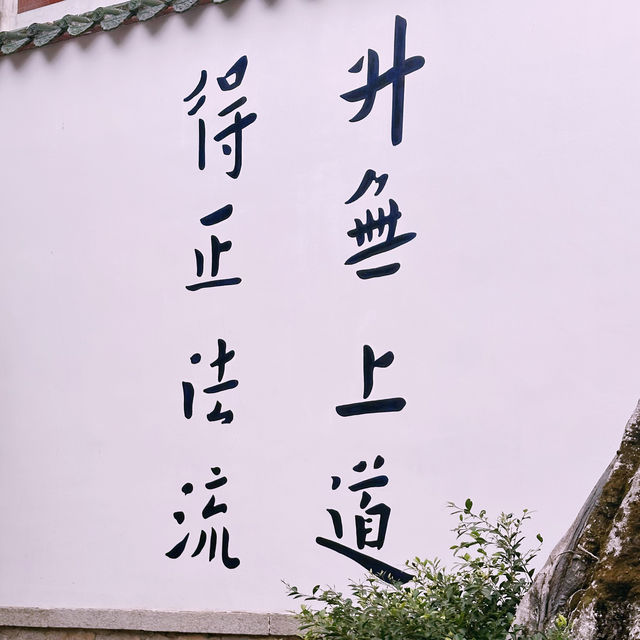 升無上道
得正法流